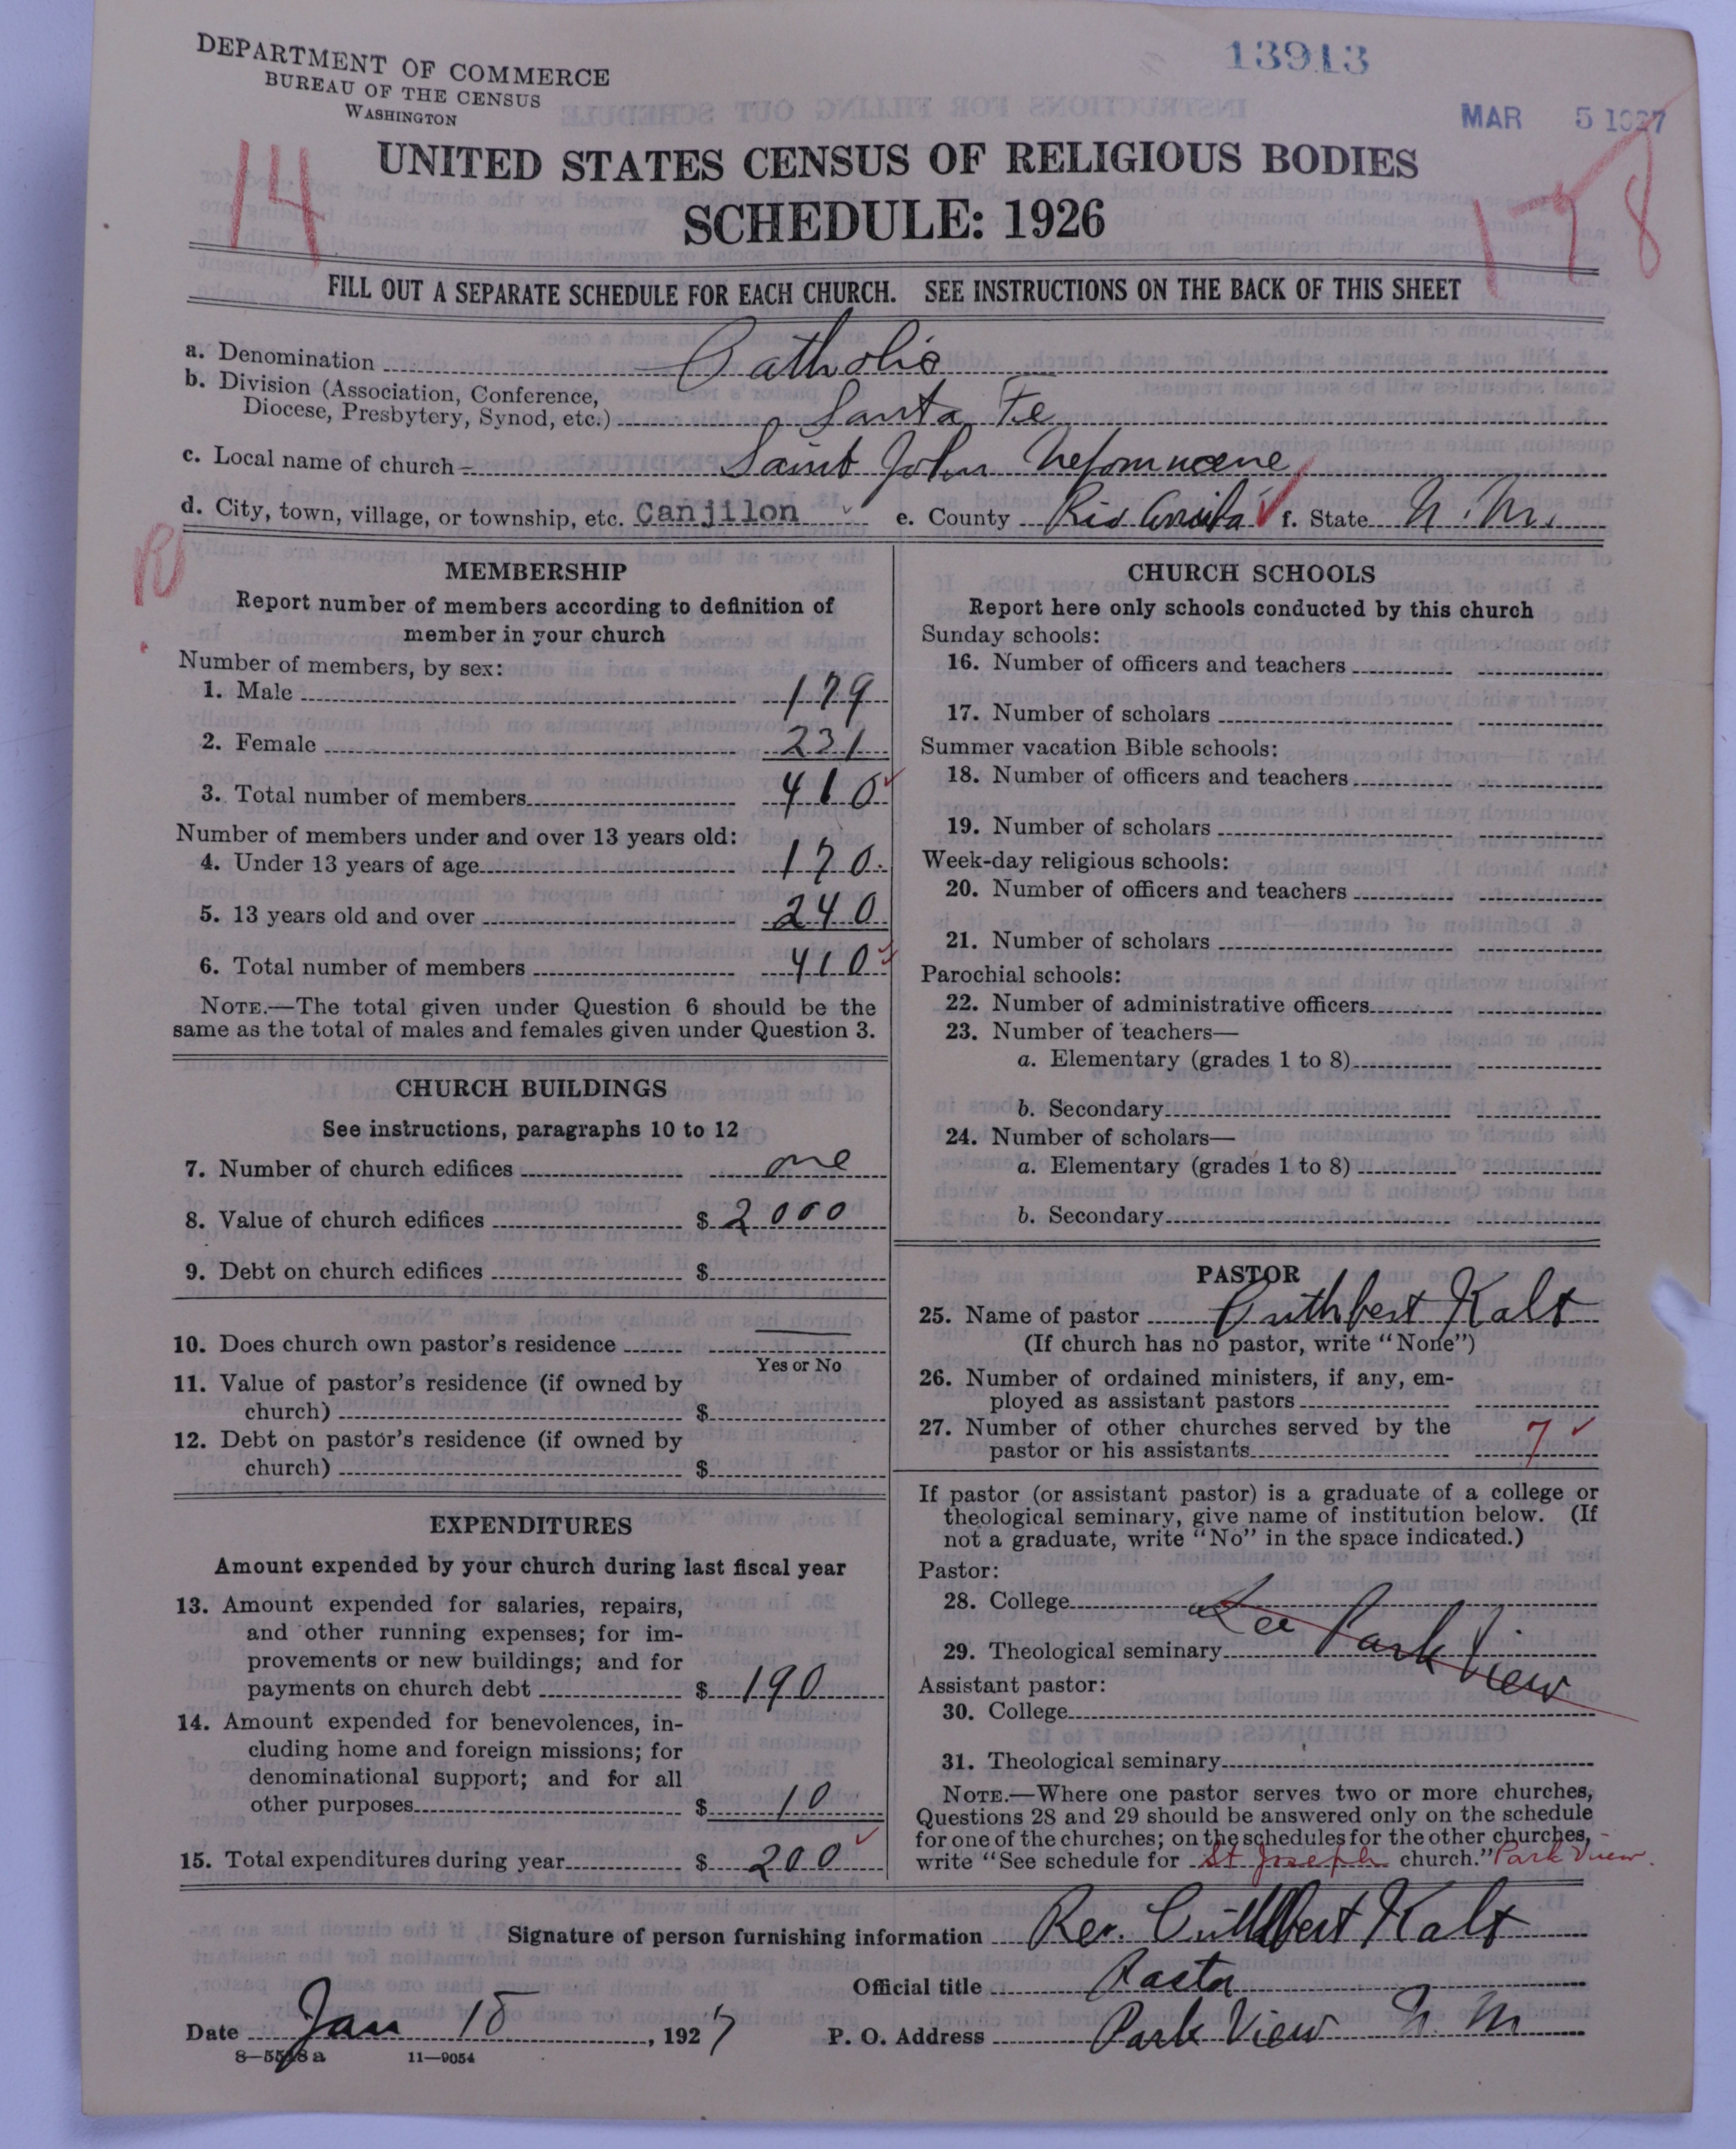 DEPARTMENT OF COMMERCE
BUREAU OF THE CENSUS
WASHINGTON
13913
MAR 5 1927
14
178
UNITED STATES CENSUS OF RELIGIOUS BODIES
SCHEDULE: 1926
FILL OUT A SEPARATE SCHEDULE FOR EACH CHURCH. SEE INSTRUCTIONS ON THE BACK OF THIS SHEET
a. Denomination Catholic
b. Division (Association, Conference,
Diocese, Presbytery, Synod, etc.) Santa Fe
c. Local name of church Saint John
d. City, town, village, or township, etc. Canjilon e. County Rio Arriba f. State N. M.
R
MEMBERSHIP
Report number of members according to definition of
member in your church
Number of members, by sex:
1. Male 179
2. Female 231
3. Total number of members 410
Number of members under and over 13 years old:
4. Under 13 years of age 170
5. 13 years old and over 240
6. Total number of members 410
NOTE.—The total given under Question 6 should be the
same as the total of males and females given under Question 3.
CHURCH BUILDINGS
See instructions, paragraphs 10 to 12
7. Number of church edifices one
8. Value of church edifices $ 2000
9. Debt on church edifices $
10. Does church own pastor's residence
Yes or No
11. Value of pastor's residence (if owned by
church) $
12. Debt on pastor's residence (if owned by
church) $
EXPENDITURES
Amount expended by your church during last fiscal year
13. Amount expended for salaries, repairs,
and other running expenses; for im-
provements or new buildings; and for
payments on church debt $ 190
14. Amount expended for benevolences, in-
cluding home and foreign missions; for
denominational support; and for all
other purposes $ 10
15. Total expenditures during year $ 200
CHURCH SCHOOLS
Report here only schools conducted by this church
Sunday schools:
16. Number of officers and teachers
17. Number of scholars
Summer vacation Bible schools:
18. Number of officers and teachers
19. Number of scholars
Week-day religious schools:
20. Number of officers and teachers
21. Number of scholars
Parochial schools:
22. Number of administrative officers
23. Number of teachers—
a. Elementary (grades 1 to 8)
b. Secondary
24. Number of scholars—
a. Elementary (grades 1 to 8)
b. Secondary
PASTOR
25. Name of pastor Cuthbert Kalt
(If church has no pastor, write "None")
26. Number of ordained ministers, if any, em-
ployed as assistant pastors
27. Number of other churches served by the
pastor or his assistants 7
If pastor (or assistant pastor) is a graduate of a college or
theological seminary, give name of institution below. (If
not a graduate, write "No" in the space indicated.)
Pastor:
28. College See Park View
29. Theological seminary
Assistant pastor:
30. College
31. Theological seminary
NOTE.—Where one pastor serves two or more churches,
Questions 28 and 29 should be answered only on the schedule
for one of the churches; on the schedules for the other churches,
write "See schedule for St Joseph church." Park View.
Signature of person furnishing information Rev. Cuthbert Kalt
Official title Pastor
Date Jan 15, 1927 P. O. Address Park View N. M.
8—5548a 11—9054